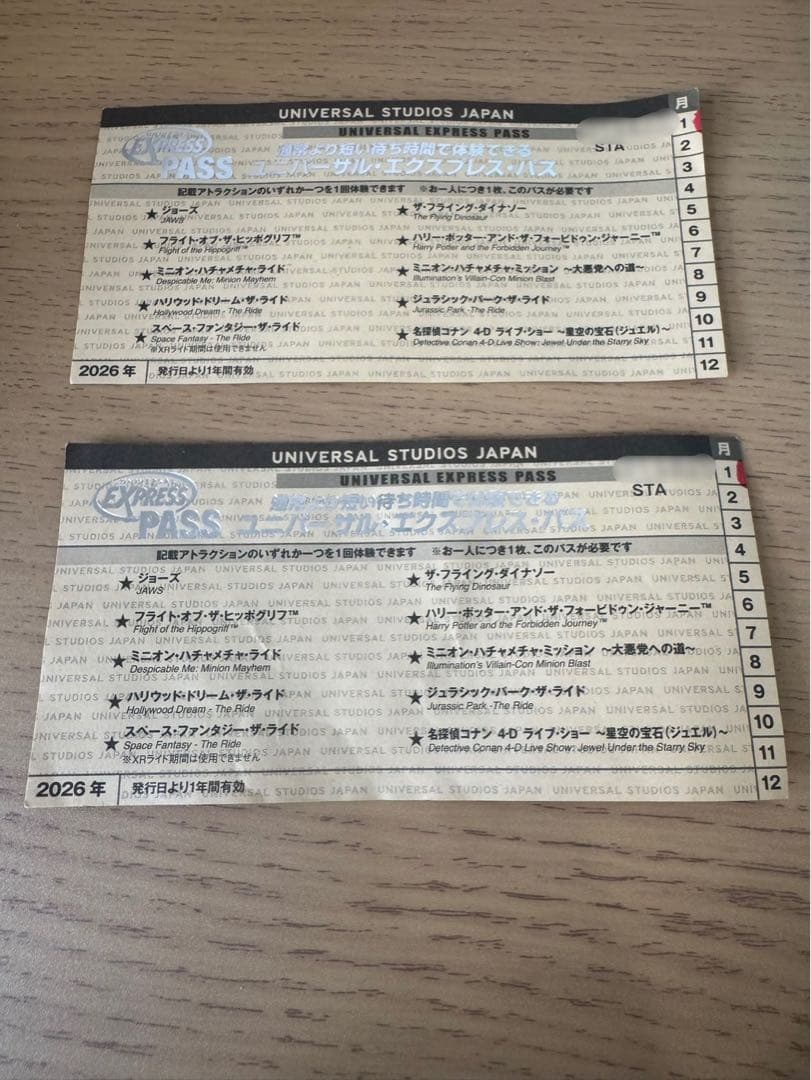 UNIVERSAL STUDIOS JAPAN
月
UNIVERSAL EXPRESS PASS
STA
EXPRESS
PASS
通常より短い待ち時間で体験できる
ユニバーサル・エクスプレス・パス
記載アトラクションのいずれか一つを1回体験できます ※お一人につき1枚、このパスが必要です
★ ジョーズ
JAWS
★ フライト・オブ・ザ・ヒッポグリフ™
Flight of the Hippogriff™
★ ミニオン・ハチャメチャ・ライド
Despicable Me: Minion Mayhem
★ ハリウッド・ドリーム・ザ・ライド
Hollywood Dream - The Ride
★ スペース・ファンタジー・ザ・ライド
Space Fantasy - The Ride
※XRライド期間は使用できません
★ ザ・フライング・ダイナソー
The Flying Dinosaur
★ ハリー・ポッター・アンド・ザ・フォービドゥン・ジャーニー™
Harry Potter and the Forbidden Journey™
★ ミニオン・ハチャメチャ・ミッション 〜大悪党への道〜
Illumination's Villain-Con Minion Blast
★ ジュラシック・パーク・ザ・ライド
Jurassic Park -The Ride
★ 名探偵コナン 4-D ライブ・ショー 〜星空の宝石(ジュエル)〜
Detective Conan 4-D Live Show: Jewel Under the Starry Sky
2026 年 発行日より1年間有効
1
2
3
4
5
6
7
8
9
10
11
12
UNIVERSAL STUDIOS JAPAN
月
UNIVERSAL EXPRESS PASS
STA
EXPRESS
PASS
通常より短い待ち時間で体験できる
ユニバーサル・エクスプレス・パス
記載アトラクションのいずれか一つを1回体験できます ※お一人につき1枚、このパスが必要です
★ ジョーズ
JAWS
★ フライト・オブ・ザ・ヒッポグリフ™
Flight of the Hippogriff™
★ ミニオン・ハチャメチャ・ライド
Despicable Me: Minion Mayhem
★ ハリウッド・ドリーム・ザ・ライド
Hollywood Dream - The Ride
★ スペース・ファンタジー・ザ・ライド
Space Fantasy - The Ride
※XRライド期間は使用できません
★ ザ・フライング・ダイナソー
The Flying Dinosaur
★ ハリー・ポッター・アンド・ザ・フォービドゥン・ジャーニー™
Harry Potter and the Forbidden Journey™
★ ミニオン・ハチャメチャ・ミッション 〜大悪党への道〜
Illumination's Villain-Con Minion Blast
★ ジュラシック・パーク・ザ・ライド
Jurassic Park -The Ride
★ 名探偵コナン 4-D ライブ・ショー 〜星空の宝石(ジュエル)〜
Detective Conan 4-D Live Show: Jewel Under the Starry Sky
2026 年 発行日より1年間有効
1
2
3
4
5
6
7
8
9
10
11
12